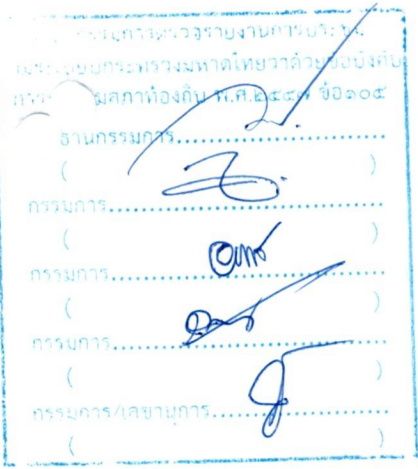 กรรมการตรวจรายงานการประชุม
ตามระเบียบกระทรวงมหาดไทยว่าด้วยข้อบังคับ
สภาท้องถิ่น พ.ศ.๒๕๔๗ ข้อ๑๐๕
ธานกรรมการ....................
( )
กรรมการ....................
( )
กรรมการ....................
( )
กรรมการ....................
( )
กรรมการ/เลขานุการ....................
( )